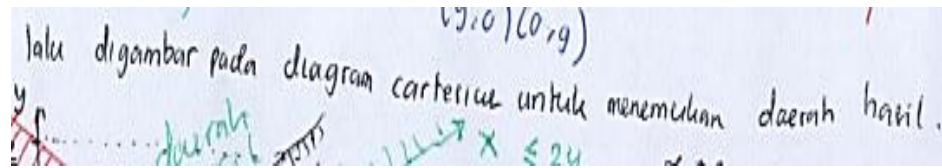 (9,0) (0,9)
lalu digambar pada diagram cartesius untuk menemukan daerah hasil.
y
daerah
x ≤ 24